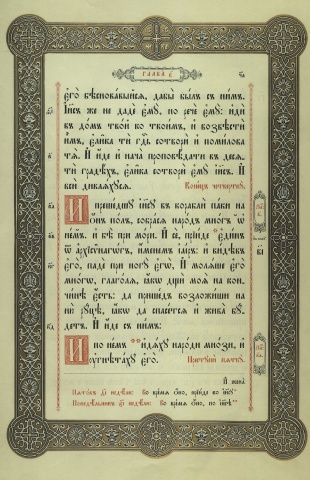 ГЛАВА є҃
є҆го̀ бѣснова́выйсѧ, дабы̀ бы́лъ съ ни́мъ.
І҆и҃съ же не дадѐ є҆мꙋ̀, но речѐ є҆мꙋ̀: и҆дѝ
въ до́мъ тво́й ко твои̑мъ, и҆ возвѣстѝ
и҆̀мъ, є҆ли̑ка тѝ гдⷭ҇ь сотворѝ и҆ поми́лова
тѧ̀. И҆ и҆́де и҆ нача́тъ проповѣ́дати въ десѧ
тѝ градѣ́хъ, є҆ли̑ка сотворѝ є҆мꙋ̀ і҆и҃съ. И҆
всѝ дивлѧ́хꙋсѧ. Коне́цъ четверткꙋ̀.
И҆ прише́дшꙋ і҆и҃сꙋ въ кораблѝ па́ки на
ѻ҆́нъ по́лъ, собра́сѧ наро́дъ мно́гъ ѡ҆
не́мъ, и҆ бѣ̀ при мо́ри. И҆ сѐ, прїи́де є҆ди́нъ
ѿ а҆рхїсѷнагѡ̑гъ, и҆́менемъ і҆аі́ръ: и҆ ви́дѣвъ
є҆го̀, падѐ при ногꙋ̀ є҆гѡ̀, И҆ молѧ́ше є҆го̀
мно́гѡ, глаго́лѧ, ꙗ҆́кѡ дщѝ моѧ̀ на кон
чи́нѣ є҆́сть: да прише́дъ возложи́ши на
ню̀ рꙋ́цѣ, ꙗ҆́кѡ да спасе́тсѧ и҆ жива̀ бꙋ́
детъ. И҆ и҆́де съ ни́мъ:
И҆ по не́мъ и҆дѧ́хꙋ наро́ди мно́зи, и҆
ᲂу҆гнета́хꙋ є҆го̀. Престꙋпѝ пѧткꙋ̀
И҆ жена̀
Во вре́мѧ ѻ҆́но, прїи́де ко і҆и҃сꙋ
Во вре́мѧ ѻ҆́но, по і҆и҃сѣ